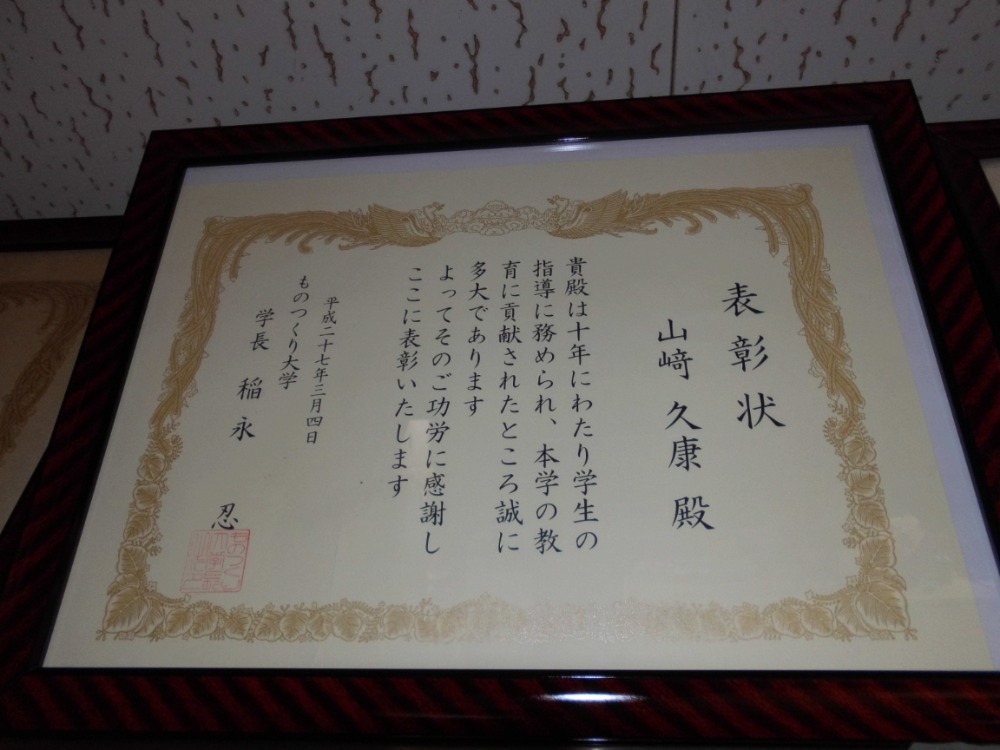 表彰状
山﨑 久康 殿
貴殿は十年にわたり学生の
指導に務められ、本学の教
育に貢献されたところ誠に
多大であります
よってそのご功労に感謝し
ここに表彰いたします
平成二十七年三月四日
ものつくり大学
学長 稲永 忍